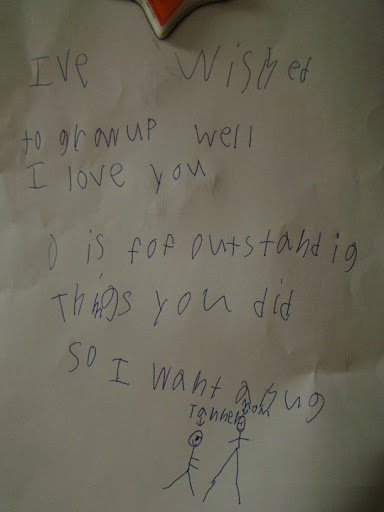 I've Wished
to grow up well
I love you
O is for outstandig
Things you did
so I want a hug
Tanner mom